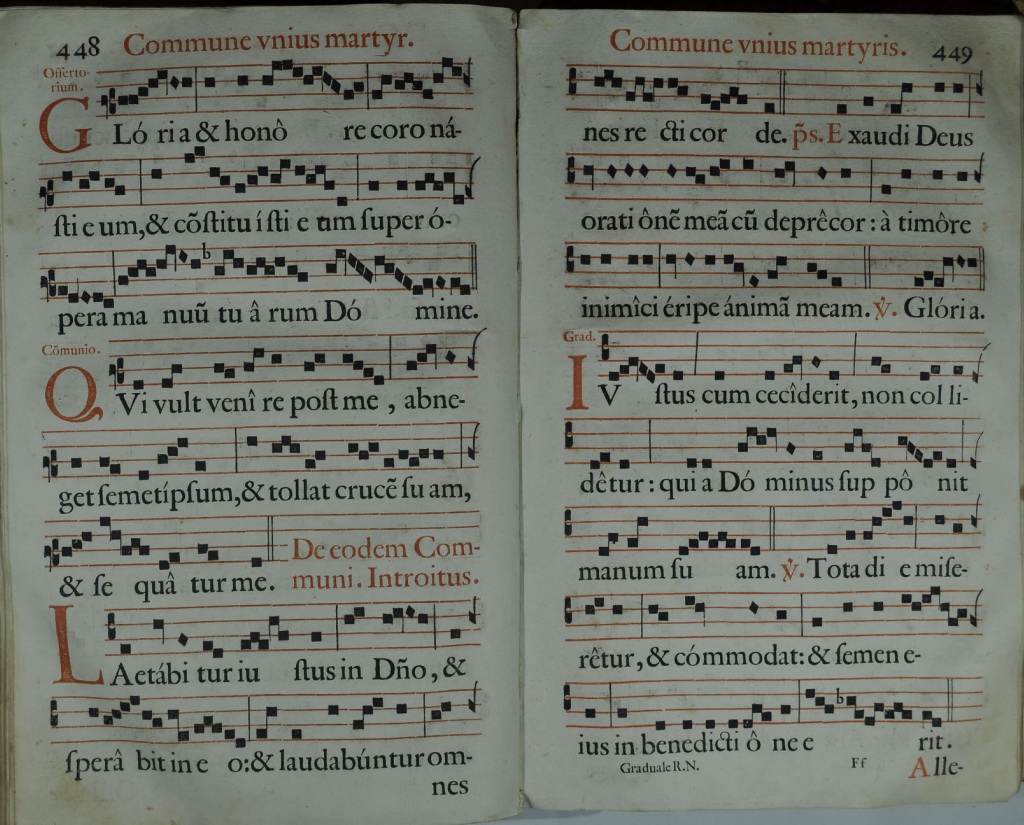 448 Commune vnius martyr.
Offerto-
rium.
GLó ri a & honô re coro ná-
ſti e um, & cõſtitu í ſti e um ſuper ó-
pera ma nuũ tu â rum Dó mine.
Cõmunio.
QVi vult venî re poſt me , abne-
get ſemetípſum, & tollat crucẽ ſu am,
& ſe quâ tur me. De eodem Com-
muni. Introitus.
LAetábi tur iu ſtus in Dño, &
ſperâ bit in e o: & laudabúntur om-
nes
Commune vnius martyris. 449
nes re cti cor de. p̃s. E xaudi Deus
orati ônẽ meã cũ deprêcor : à timôre
inimîci éripe ánimã meam. ℣. Glóri a.
Grad.
IV ſtus cum cecîderit, non col li-
dêtur : qui a Dó minus ſup pô nit
manum ſu am. ℣. Tota di e miſe-
rêtur, & cómmodat: & ſemen e-
ius in benedicti ô ne e rit.
Graduale R.N. Ff Alle-